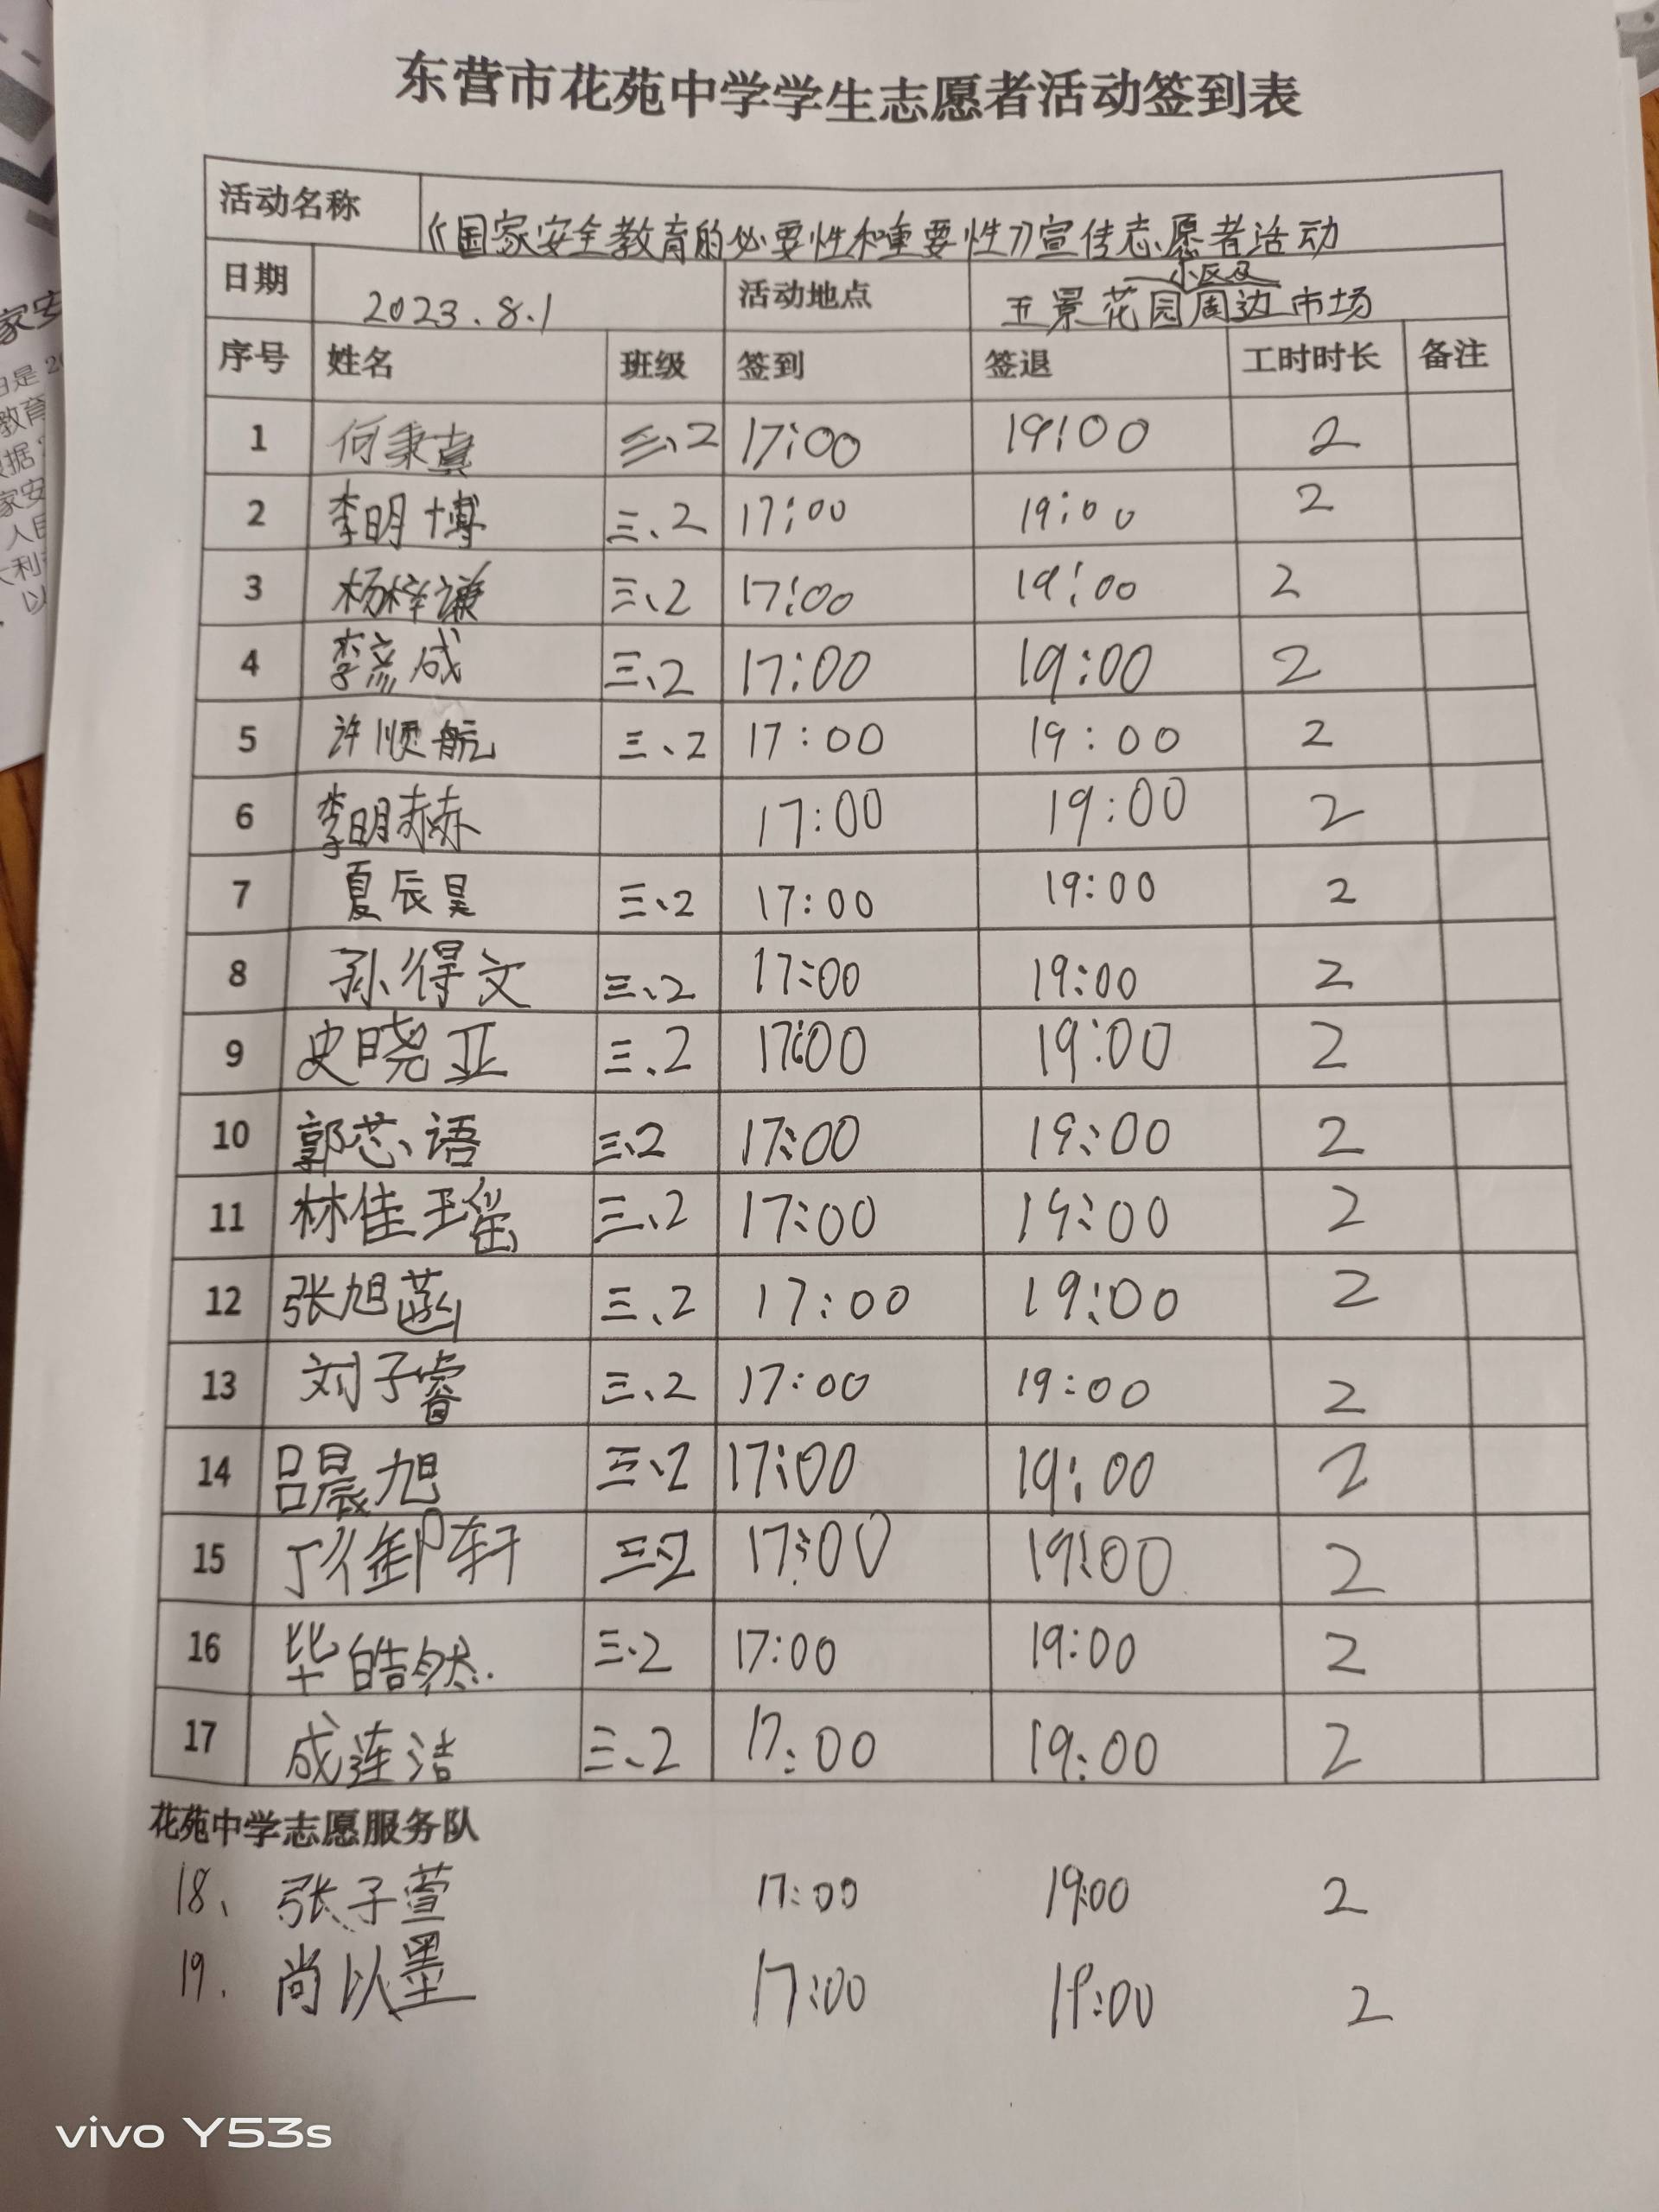 东营市花苑中学学生志愿者活动签到表
活动名称 《国家安全教育的必要性和重要性》宣传志愿者活动
小区及
日期 2023.8.1 活动地点 玉景花园周边市场
序号 姓名 班级 签到 签退 工时时长 备注
1 何秉真 三、2 17:00 19:00 2
2 李明博 三、2 17:00 19:00 2
3 杨梓谦 三、2 17:00 19:00 2
4 李彦成 三、2 17:00 19:00 2
5 许顺航 三、2 17:00 19:00 2
6 李明赫 17:00 19:00 2
7 夏辰昊 三、2 17:00 19:00 2
8 孙得文 三、2 17:00 19:00 2
9 史晓亚 三、2 17:00 19:00 2
10 郭芯语 三、2 17:00 19:00 2
11 林佳瑶 三、2 17:00 19:00 2
12 张旭菡 三、2 17:00 19:00 2
13 刘子睿 三、2 17:00 19:00 2
14 吕晨旭 三、2 17:00 19:00 2
15 丁御轩 三、2 17:00 19:00 2
16 毕皓然. 三、2 17:00 19:00 2
17 成连洁 三、2 17:00 19:00 2
花苑中学志愿服务队
18、张子萱 17:00 19:00 2
19. 尚以墨 17:00 19:00 2
vivo Y53s